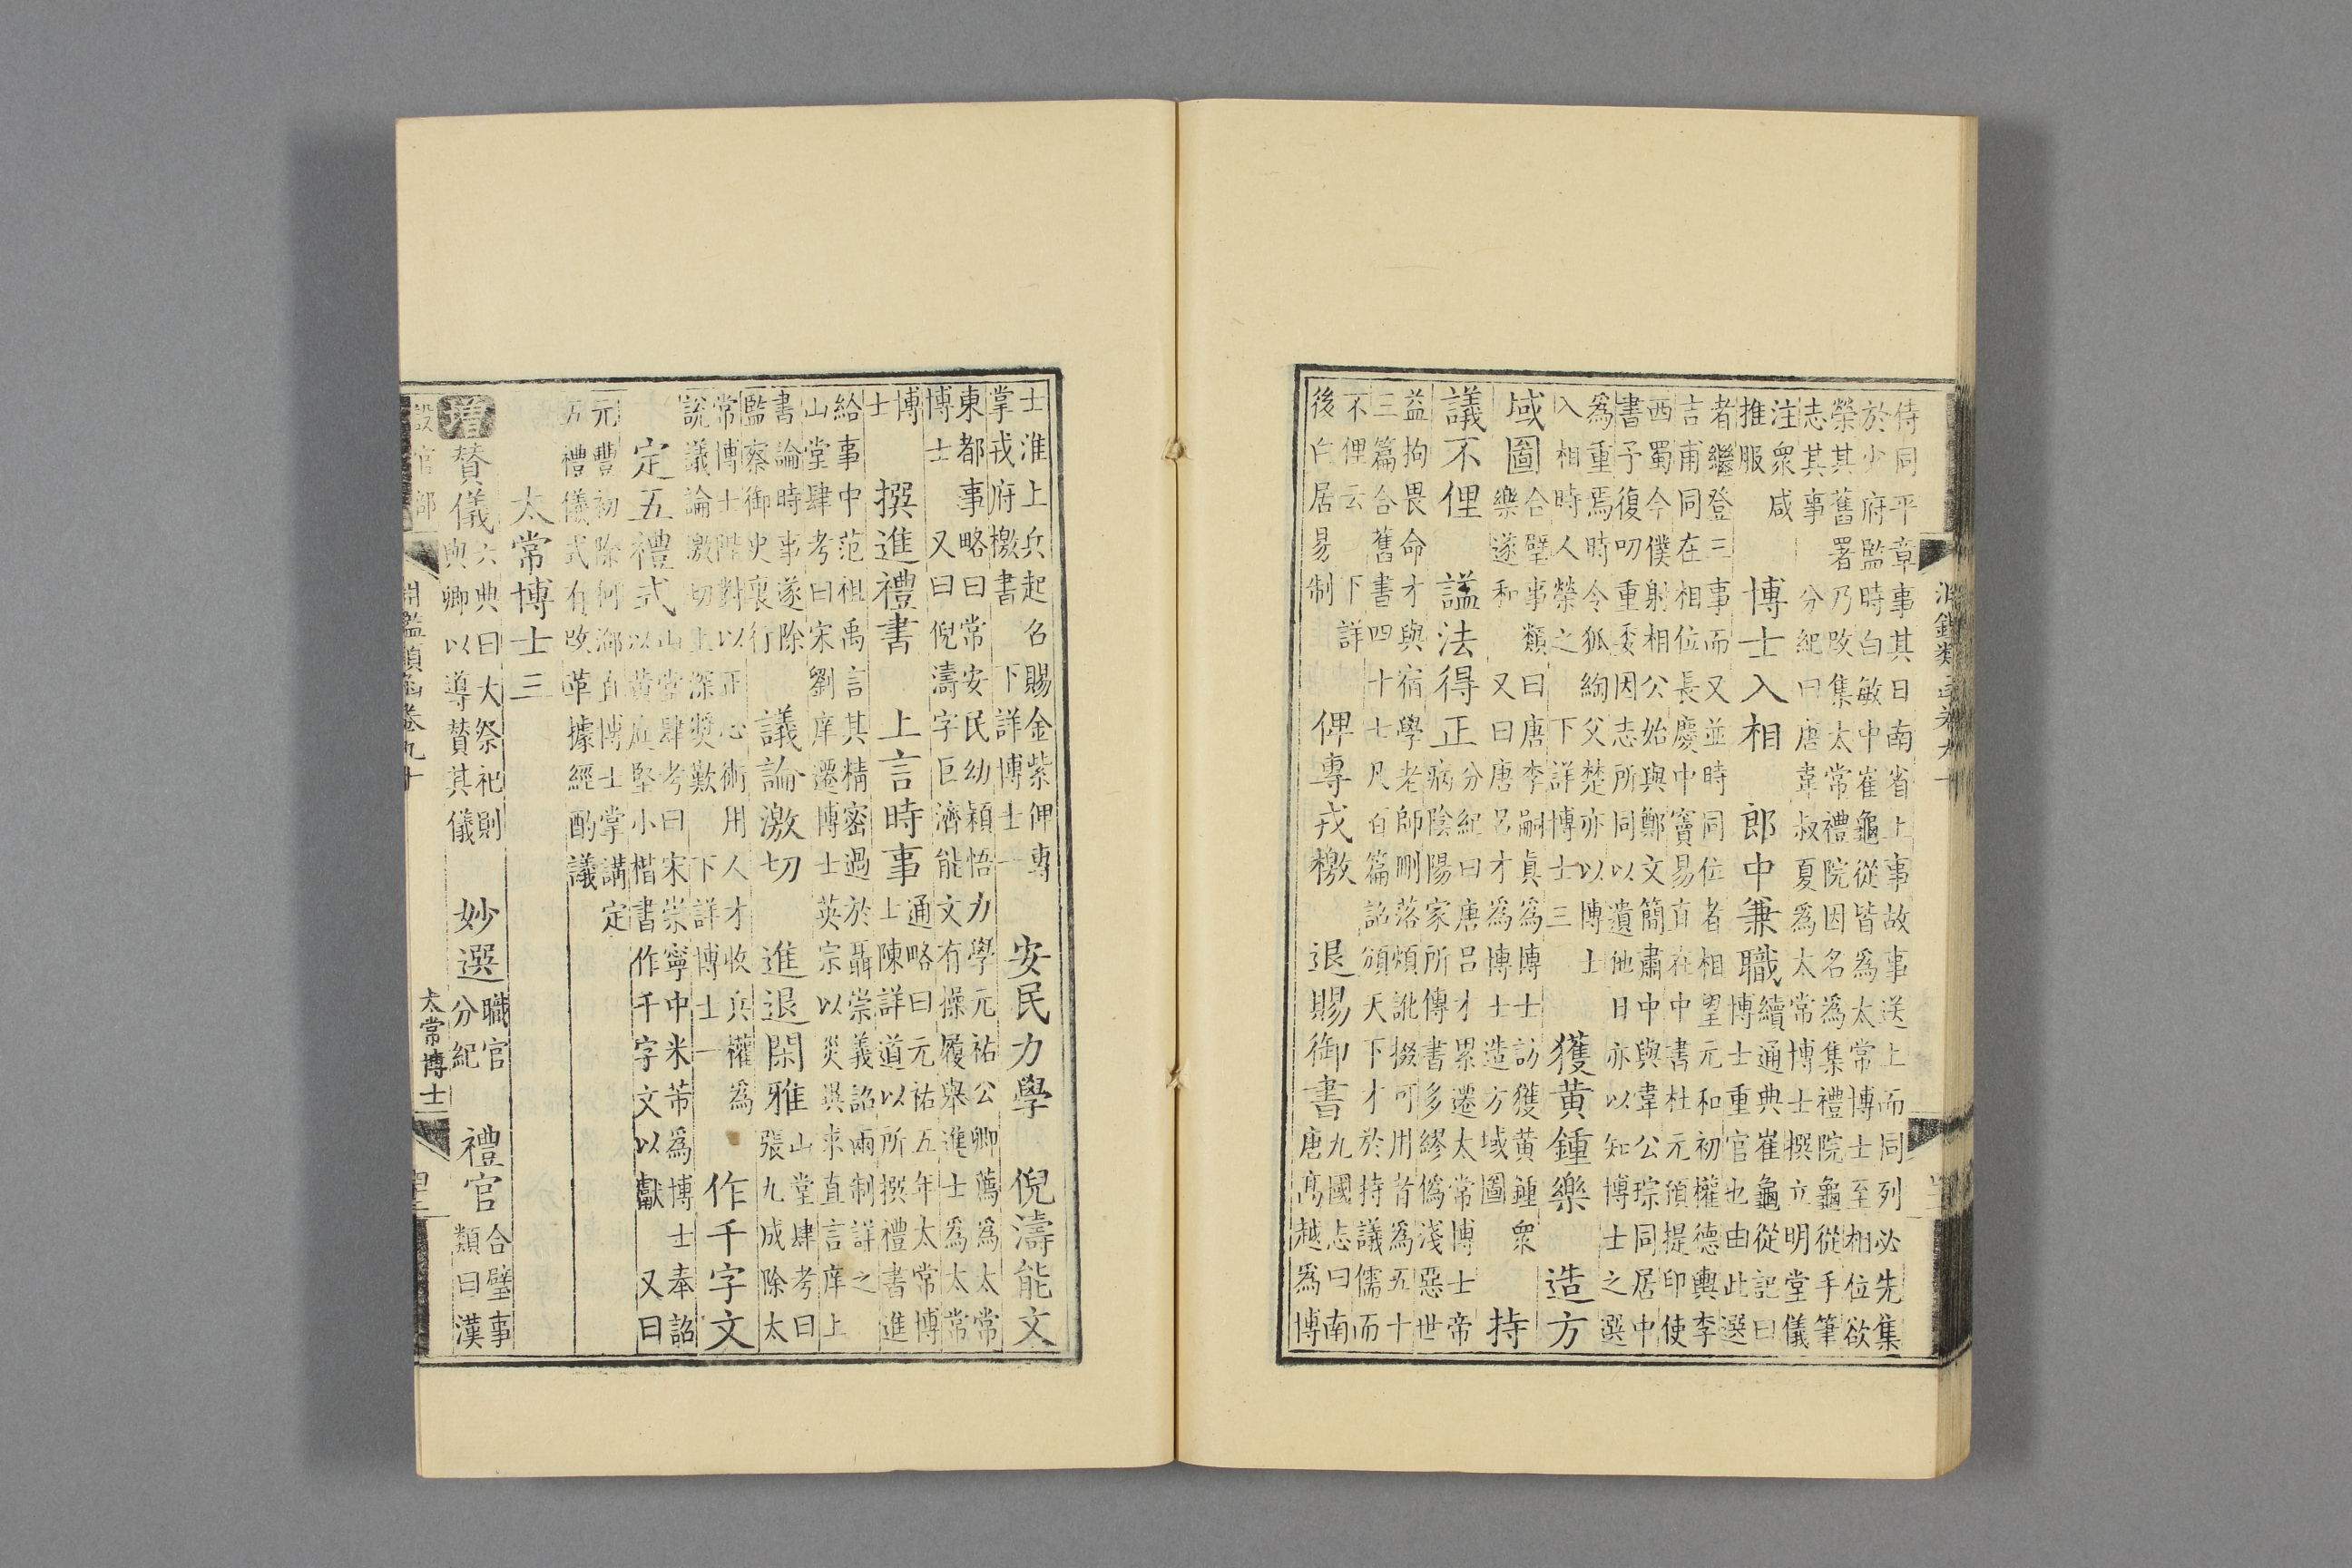 淵鑑類函卷九十
侍同平章事其日南省上事故事送上而同列必先集
於少府監時白敏中崔龜從皆爲太常博士至相位欲
榮其舊署乃改集太常禮院因名爲集禮院龜從手筆
志其事 分紀曰唐韋叔夏爲太常博士撰立明堂儀
注衆咸
推服 博士入相 郎中兼職 續通典崔龜從記曰
博士重官也由此選
者繼登三事而又並時同位者相望元和初權德輿李
吉甫同在相位長慶中竇易直在中書杜元頴提印使
西蜀今僕射相公始與鄭文簡肅中與韋公琮同居中
書予復叨重委因志所同以遺他日亦以知博士之選
爲重焉時令狐綯父楚亦以博士
入相時人榮之 下詳博士三 獲黃鍾樂 造方
域圖 合璧事類曰唐李嗣真爲博士訪獲黃鍾衆
樂遂和 又曰唐呂才爲博士造方域圖 持
議不俚 諡法得正 分紀曰唐呂才累遷太常博士帝
病陰陽家所傳書多繆僞淺惡世
益拘畏命才與宿學老師刪落煩訛掇可用者爲五十
三篇合舊書四十七凡百篇詔頒天下才於持議儒而
不俚云 下詳
後白居易制 俾專戎檄 退賜御書 九國志曰南
唐高越爲博
士淮上兵起召賜金紫俾專
掌戎府檄書 下詳博士一 安民力學 倪濤能文
東都事略曰常安民幼穎悟力學元祐公卿薦爲太常
博士 又曰倪濤字巨濟能文有操履舉進士爲太常
博
士 撰進禮書 上言時事 通略曰元祐五年太常博
士陳詳道以所撰禮書進
給事中范祖禹言其精密過於聶崇義詔兩制詳之
山堂肆考曰宋劉庠遷博士英宗以災異求直言庠上
書論時事遂除
監察御史裏行 議論激切 進退閑雅 山堂肆考曰
張九成除太
常博士陛對以正心術用人才收兵權爲
說議論激切上深獎歎 下詳博士一 作千字文
定五禮式 山堂肆考曰宋崇寧中米芾爲博士奉詔
以黃庭堅小楷書作千字文以獻 又曰
元豐初除何洵直博士掌講定
五禮儀式有改革據經酌議
太常博士三
增贊儀 六典曰大祭祀則
與卿以導贊其儀 妙選 職官
分紀 禮官 合璧事
類曰漢
設官部 淵鑑類函卷九十 太常博士